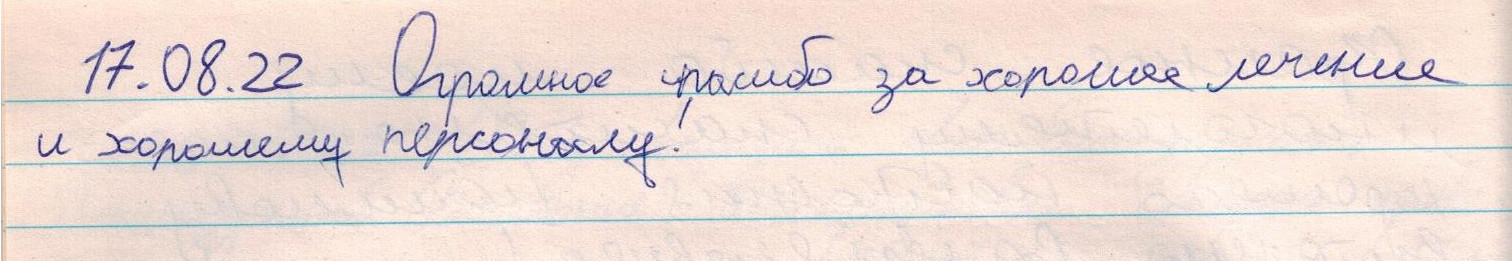 17.08.22 Огромное спасибо за хорошее лечение
и хорошему персоналу!